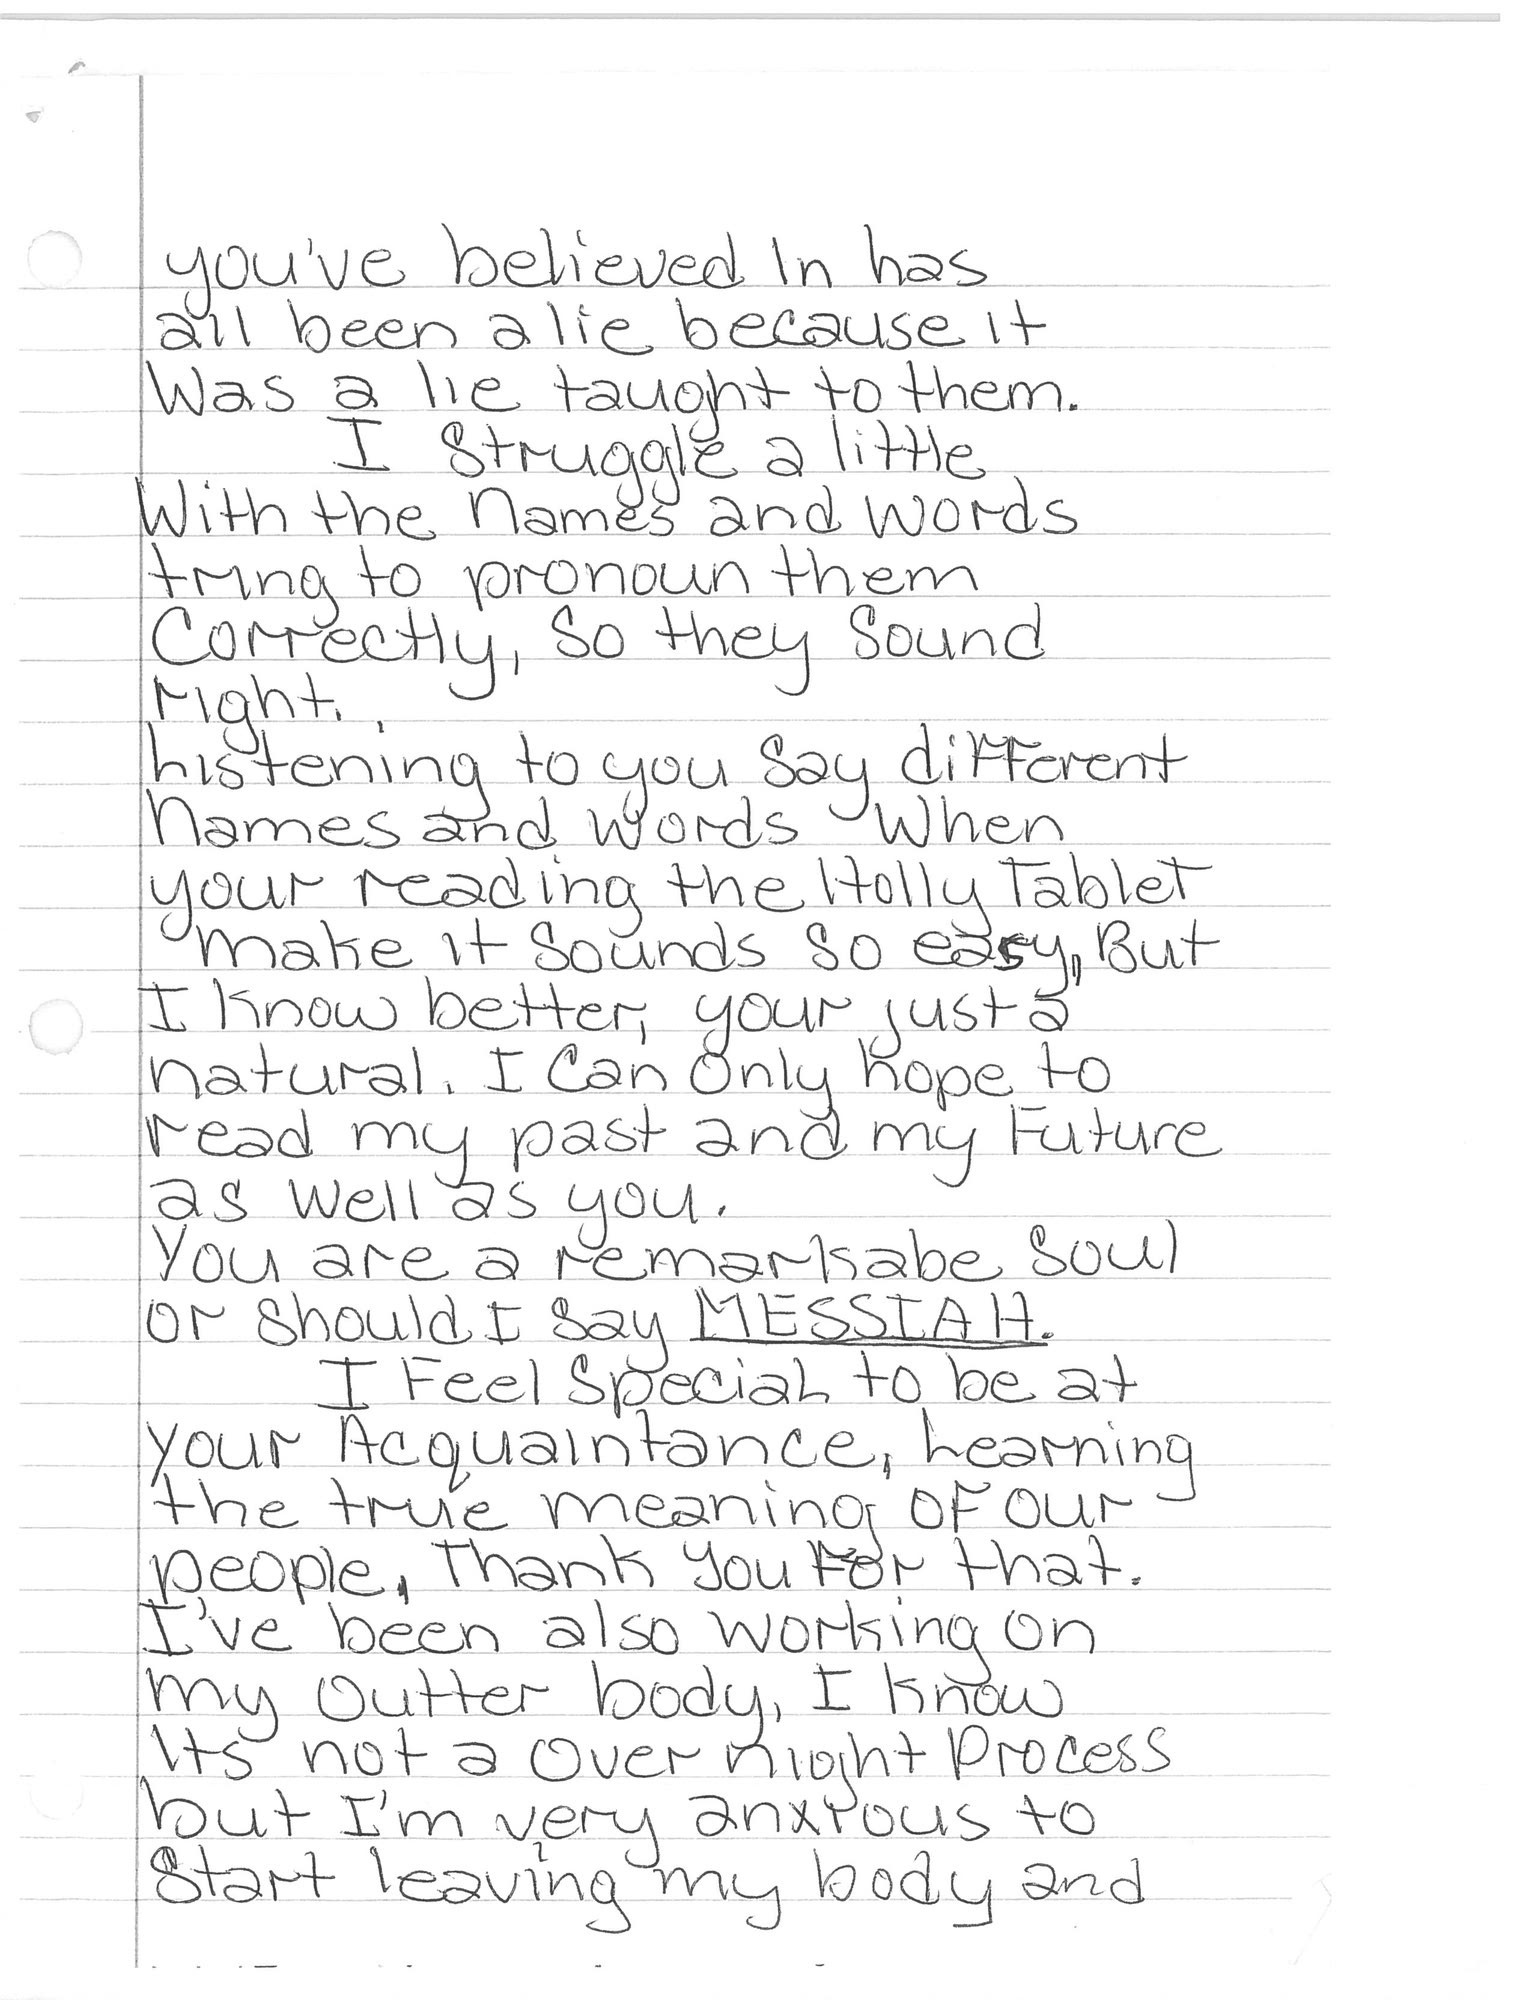 you've believed In has
all been a lie because it
Was a lie taught to them.
I Struggle a little
With the Names and words
tring to pronoun them
Correctly, So they Sound
right.
Listening to you Say different
Names and Words When
your reading the Holly Tablet
make it Sounds So easy, But
I know better, your just a
natural. I Can Only hope to
read my past and my Future
as well as you.
You are a remarkabe Soul
or Should I Say MESSIAH.
I Feel Special to be at
your Acquaintance, Learning
the true meaning OF our
people, Thank You For that.
I've been also working on
my Outter body, I know
Its not a Over night Process
but I'm very anxious to
Start leaving my body and